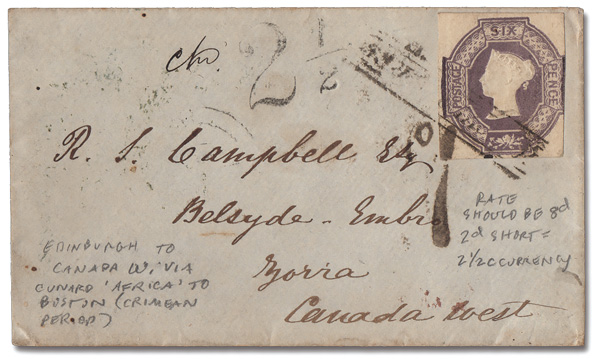 2 1/2
SIX
POSTAGE
PENCE
R. S. Campbell Esq
Belsyde - Embro
Zorra
Canada West
EDINBURGH TO
CANADA W. VIA
CUNARD 'AFRICA' TO
BOSTON (CRIMEAN
PERIOD)
RATE
SHOULD BE 8d
2d SHORT =
2 1/2 CURRENCY